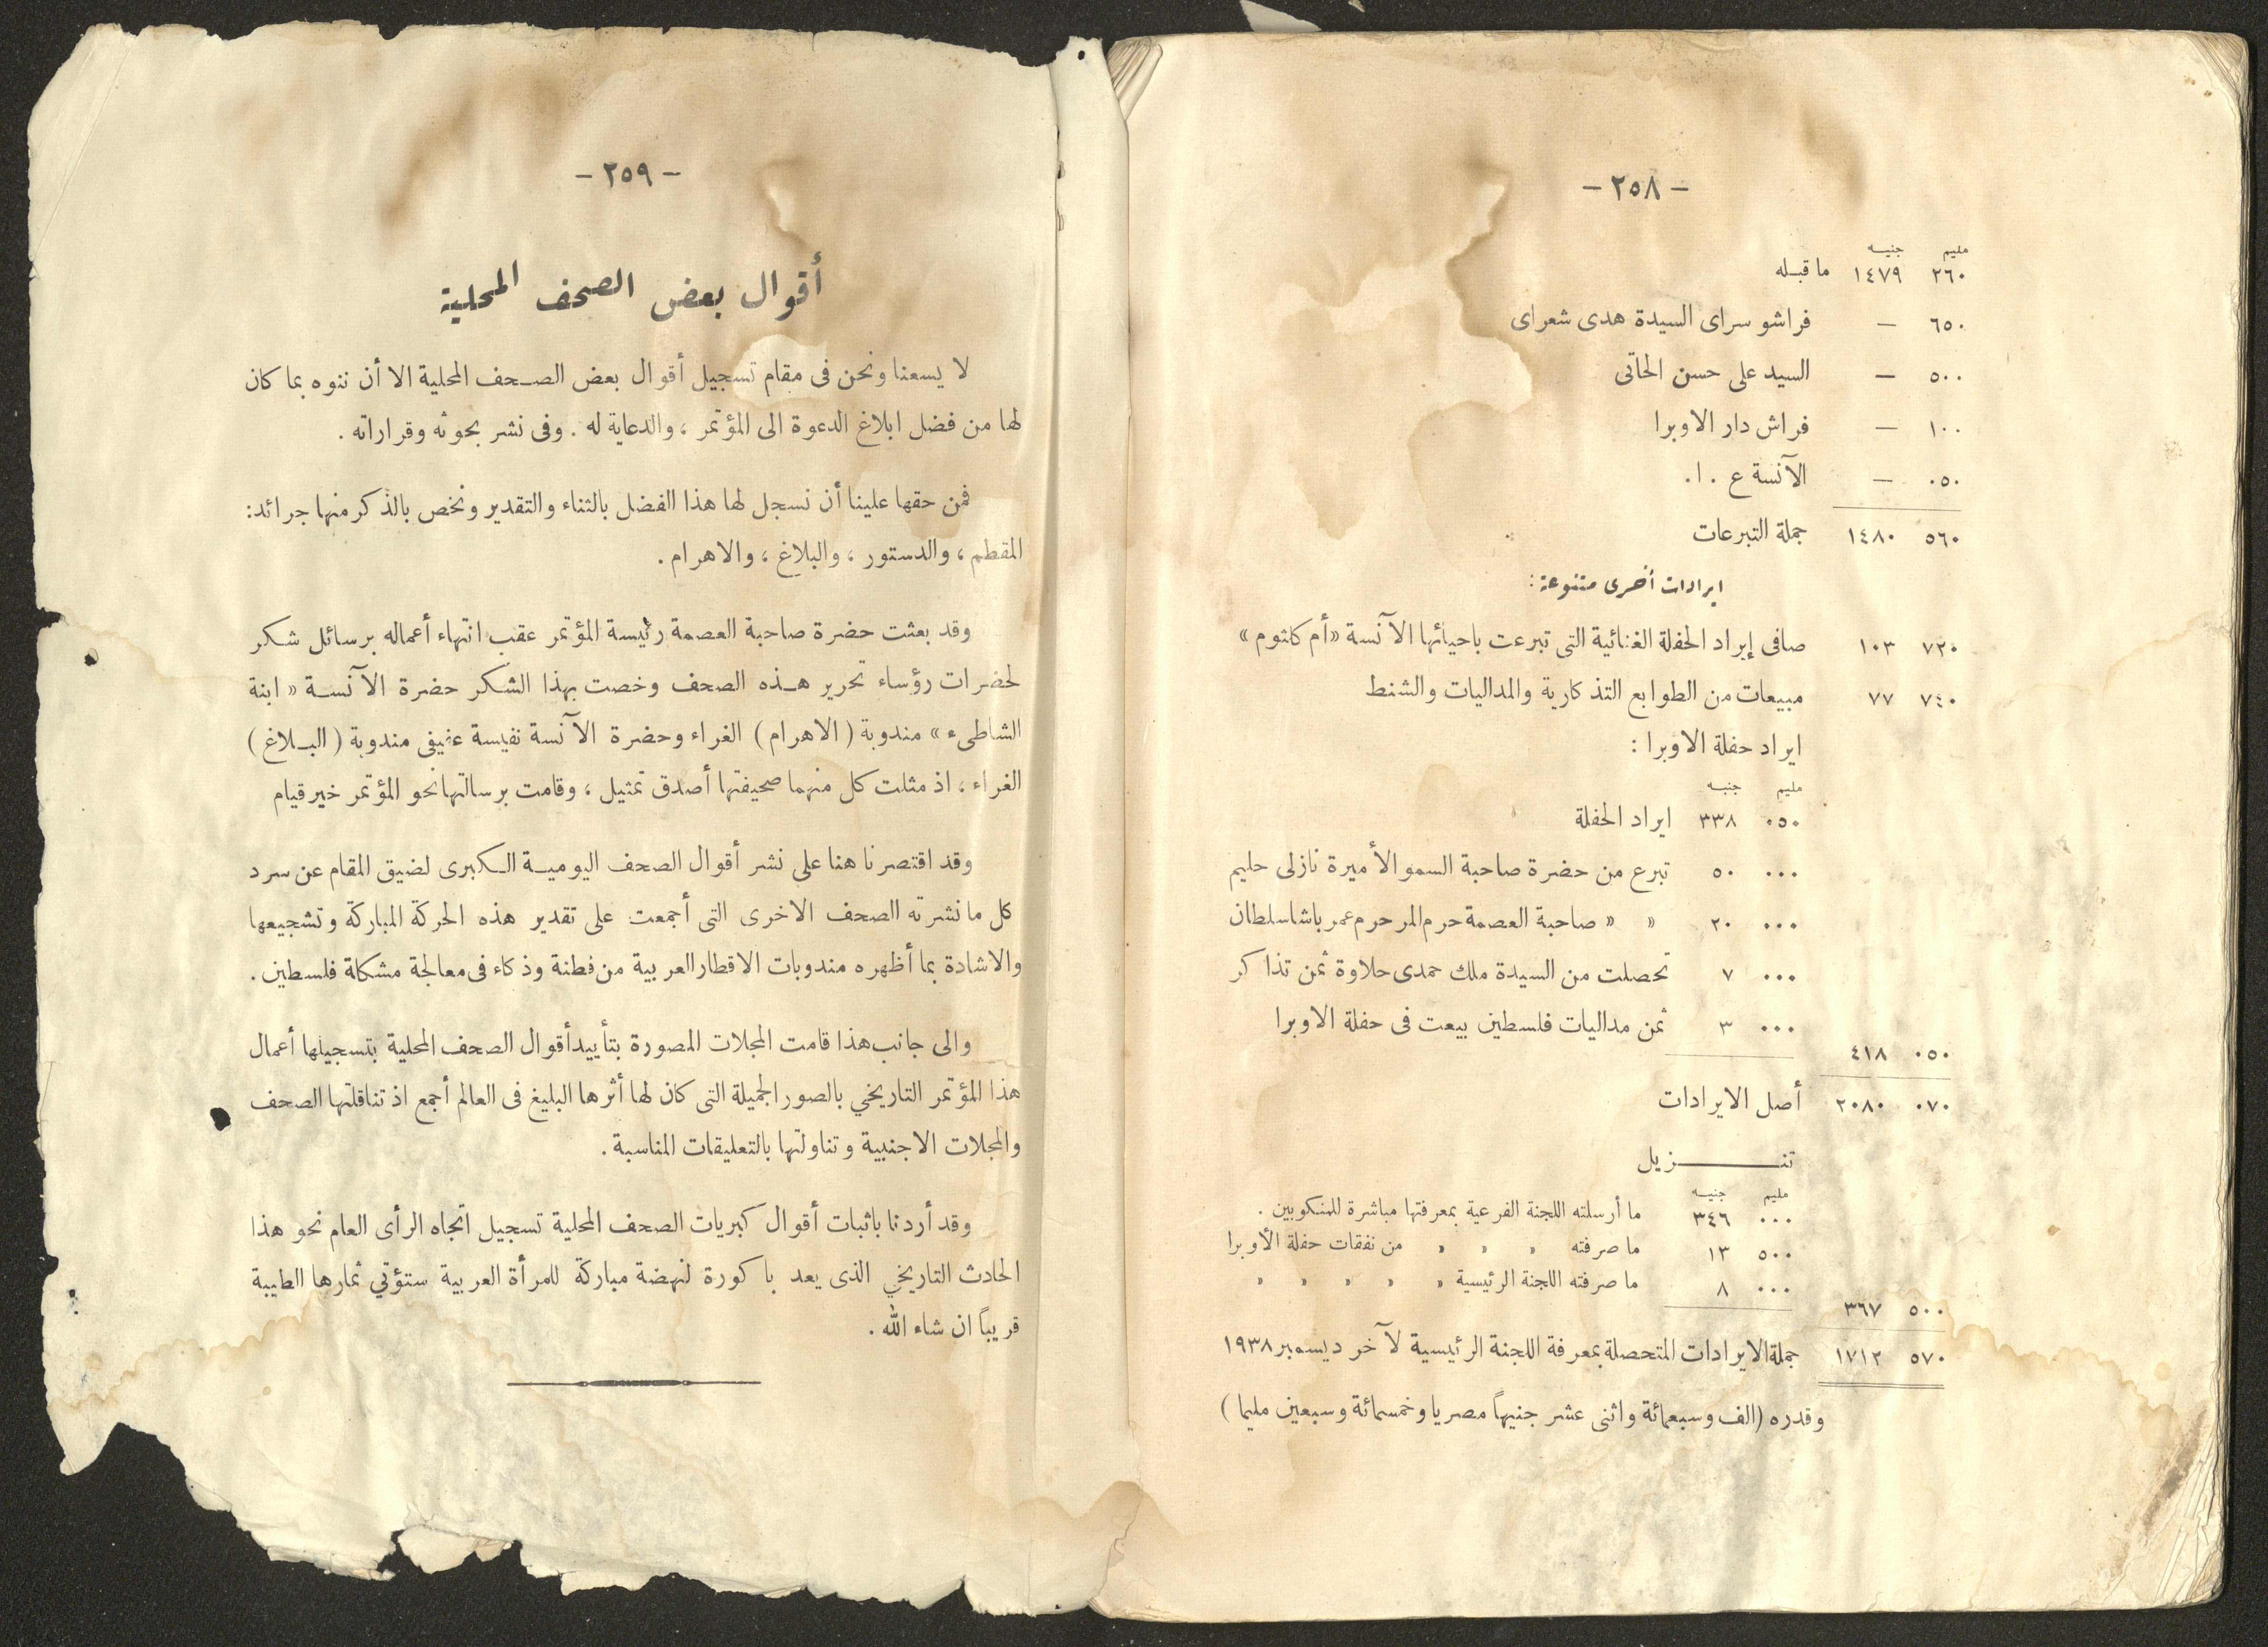 — ٢٥٨ —
مليم جنيه
٢٦٠ ١٤٧٩ ما قبله
٦٥٠ — فراشو سراى السيدة هدى شعراى
٥٠٠ — السيد على حسن الحاتى
١٠٠ — فراش دار الاوبرا
٠٥٠ — الآنسة ع . ا.
٥٦٠ ١٤٨٠ جملة التبرعات
ايرادات أخرى متنوعة :
٧٢٠ ١٠٣ صافى إيراد الحفلة الغنائية التى تبرعت باحيائها الآنسة «أم كلثوم»
٧٤٠ ٧٧ مبيعات من الطوابع التذكارية والمداليات والشنط
ايراد حفلة الاوبرا :
مليم جنيه
٠٥٠ ٣٣٨ ايراد الحفلة
٠٠٠ ٥٠ تبرع من حضرة صاحبة السمو الأميرة نازلى حليم
٠٠٠ ٢٠ » » صاحبة العصمة حرم المرحوم عمر باشا سلطان
٠٠٠ ٧ تحصلت من السيدة ملك حمدى حلاوة ثمن تذاكر
٠٠٠ ٣ ثمن مداليات فلسطين بيعت فى حفلة الاوبرا
٠٥٠ ٤١٨
٠٧٠ ٢٠٨٠ أصل الايرادات
تنـــزيل
مليم جنيه
٠٠٠ ٣٤٦ ما أرسلته اللجنة الفرعية بمعرفتها مباشرة للمنكوبين .
٥٠٠ ١٣ ما صرفته » » » من نفقات حفلة الأوبرا
٠٠٠ ٨ ما صرفته اللجنة الرئيسية » » » » »
٥٠٠ ٣٦٧
٥٧٠ ١٧١٢ جملة الايرادات المتحصلة بمعرفة اللجنة الرئيسية لآخر ديسمبر ١٩٣٨
وقدره (الف وسبعمائة واثنى عشر جنيهاً مصريا وخمسمائة وسبعين مليما)
— ٢٥٩ —
أقوال بعض الصحف المحلية
لا يسعنا ونحن فى مقام تسجيل أقوال بعض الصحف المحلية الا أن ننوه بما كان
لها من فضل ابلاغ الدعوة الى المؤتمر ، والدعاية له . وفى نشر بحوثه وقراراته .
فمن حقها علينا أن نسجل لها هذا الفضل بالثناء والتقدير ونخص بالذكر منها جرائد:
المقطم ، والدستور ، والبلاغ ، والاهرام .
وقد بعثت حضرة صاحبة العصمة رئيسة المؤتمر عقب انتهاء أعماله برسائل شكر
لحضرات رؤساء تحرير هذه الصحف وخصت بهذا الشكر حضرة الآنسة « ابنة
الشاطىء » مندوبة ( الاهرام ) الغراء وحضرة الآنسة نفيسة عفيفى مندوبة ( البلاغ )
الغراء ، اذ مثلت كل منهما صحيفتها أصدق تمثيل ، وقامت برسالتها نحو المؤتمر خير قيام
وقد اقتصرنا هنا على نشر أقوال الصحف اليومية الكبرى لضيق المقام عن سرد
كل ما نشرته الصحف الاخرى التى أجمعت على تقدير هذه الحركة المباركة وتشجيعها
والاشادة بما أظهره مندوبات الاقطار العربية من فطنة وذكاء فى معالجة مشكلة فلسطين .
والى جانب هذا قامت المجلات المصورة بتأييد أقوال الصحف المحلية بتسجيلها أعمال
هذا المؤتمر التاريخي بالصور الجميلة التى كان لها أثرها البليغ فى العالم أجمع اذ تناقلتها الصحف
والمجلات الاجنبية وتناولتها بالتعليقات المناسبة .
وقد أردنا باثبات أقوال كبريات الصحف المحلية تسجيل اتجاه الرأى العام نحو هذا
الحادث التاريخي الذى يعد باكورة لنهضة مباركة للمرأة العربية ستؤتي ثمارها الطيبة
قريباً ان شاء الله .